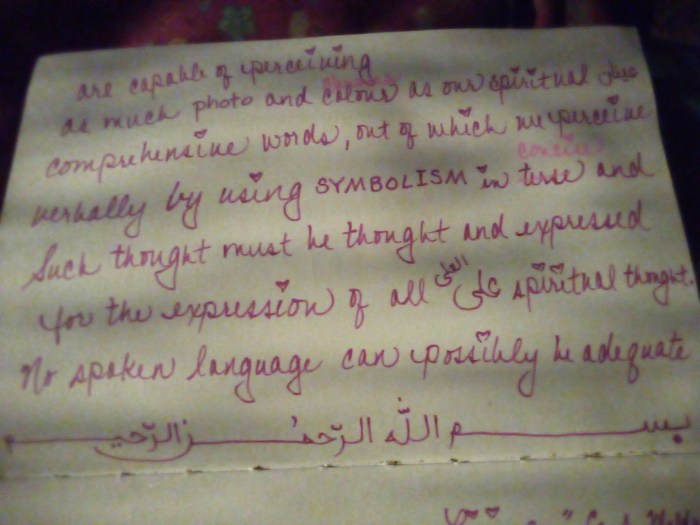 بسم الله الرّحمن الرّحيم
No spoken language can possibly be adequate
for the expression of all على العلى spiritual thought.
Such thought must be thought and expressed
verbally by using SYMBOLISM in terse and
concise
comprehensive words, out of which we perceive
as much photo and colour as our spiritual
are capable of perceiving